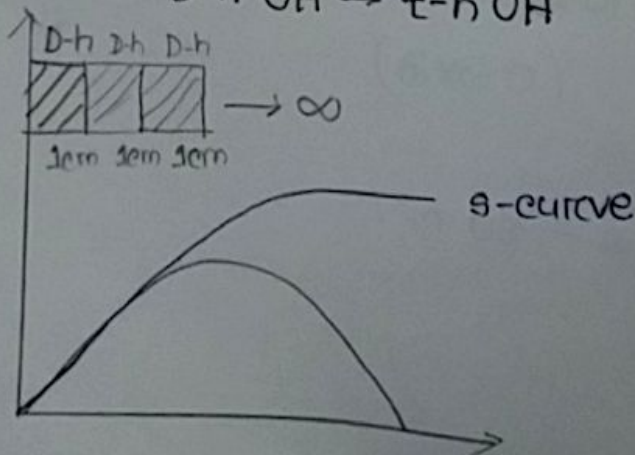 OH → t-h OH
D-h D-h D-h
→ ∞
1cm 1cm 1cm
S-curve